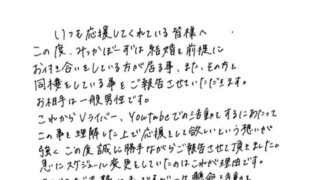 いつも応援してくれている皆様へ
この度、みっかぼーずは結婚を前提に
お付き合いをしている方が居る事、また、その方と
同棲をしている事をご報告させていただきます。
お相手は一般男性です。
これからVライバー、Youtubeでの活動をするにあたって
この事を理解した上で応援をして欲しいという想いが
強く この度誠に勝手ながらご報告させて頂きました。
急にスケジュール変更をしていたのはこれが理由です。